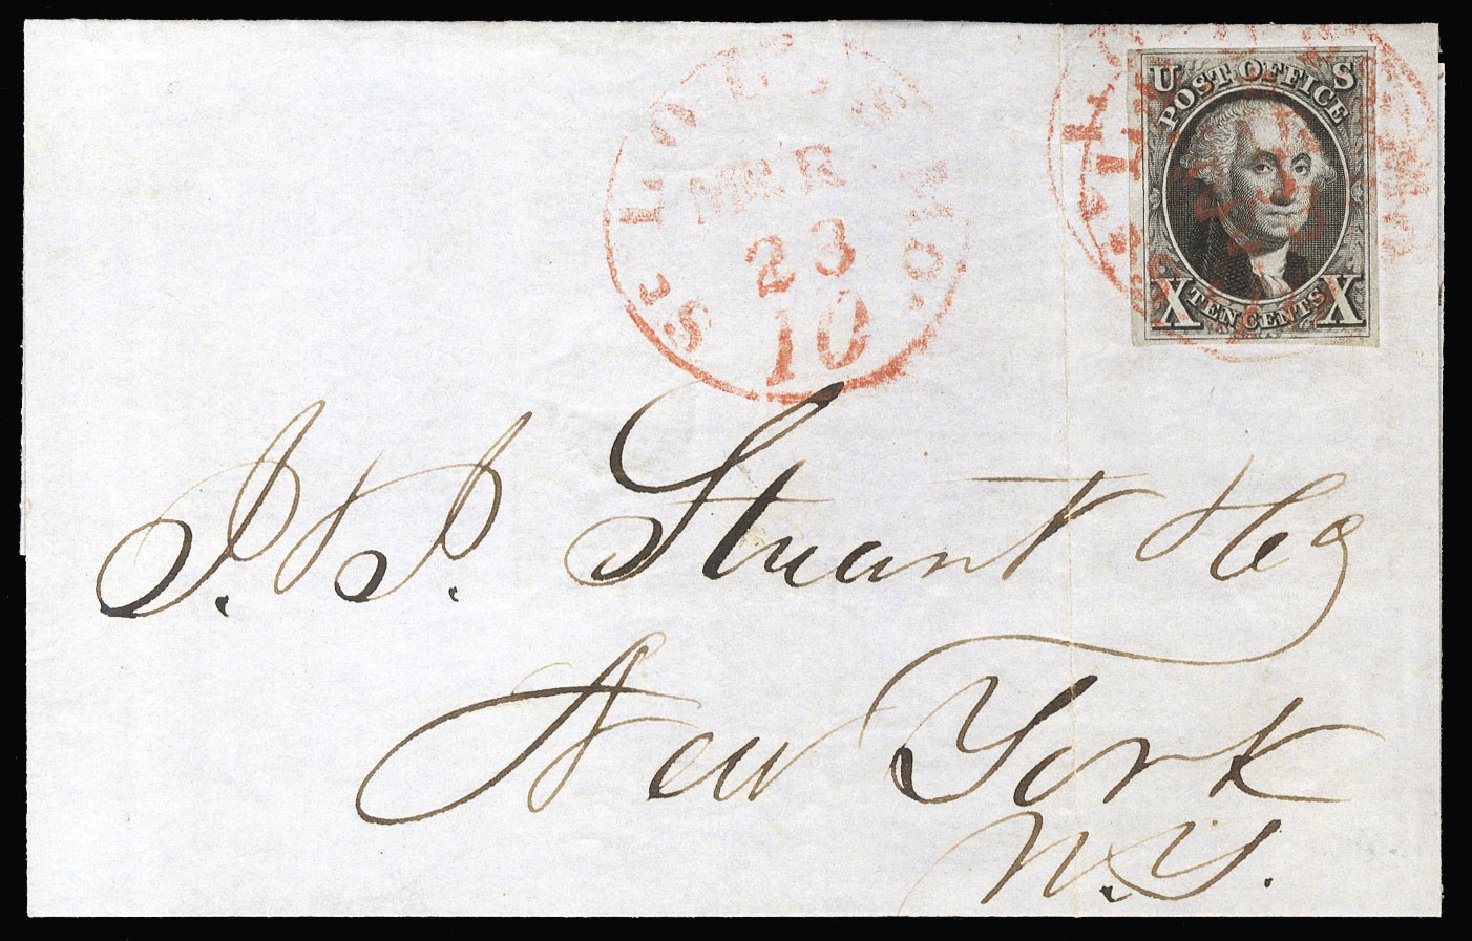 ST. LOUIS Mo.
MAR
23
10
U S
POST OFFICE
X TEN CENTS X
J. & J. Stuart & Co
New York
N.Y.